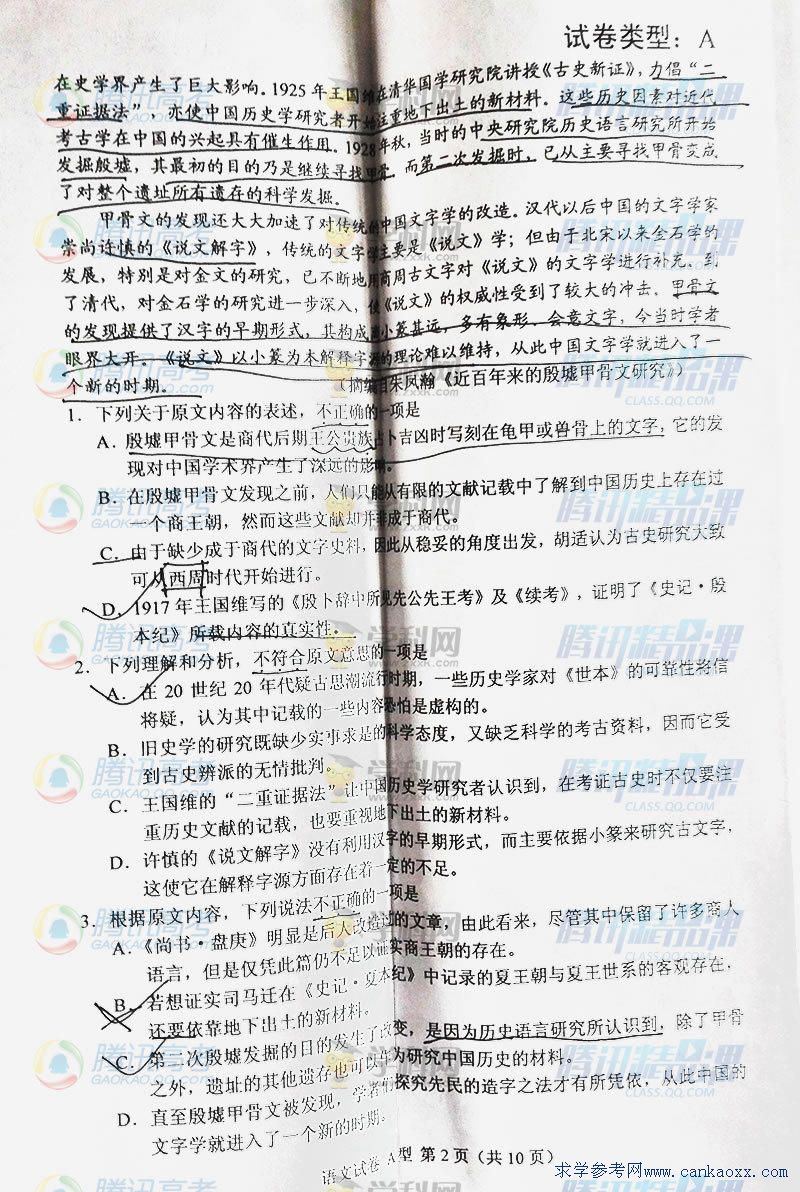 试卷类型：A
在史学界产生了巨大影响。1925年王国维在清华国学研究院讲授《古史新证》，力倡“二
重证据法”，亦使中国历史学研究者开始注重地下出土的新材料。这些历史因素对近代
考古学在中国的兴起具有催生作用。1928年秋，当时的中央研究院历史语言研究所开始
发掘殷墟，其最初的目的乃是继续寻找甲骨，而第二次发掘时，已从主要寻找甲骨变成
了对整个遗址所有遗存的科学发掘。
甲骨文的发现还大大加速了对传统的中国文字学的改造。汉代以后中国的文字学家
崇尚许慎的《说文解字》，传统的文字学主要是《说文》学；但由于北宋以来金石学的
发展，特别是对金文的研究，已不断地用商周古文字对《说文》的文字学进行补充。到
了清代，对金石学的研究进一步深入，使《说文》的权威性受到了较大的冲击。甲骨文
的发现提供了汉字的早期形式，其构成离小篆甚远，多有象形、会意文字，令当时学者
眼界大开。《说文》以小篆为本解释字源的理论难以维持，从此中国文字学就进入了一
个新的时期。（摘编自朱凤瀚《近百年来的殷墟甲骨文研究》）
1．下列关于原文内容的表述，不正确的一项是
A．殷墟甲骨文是商代后期王公贵族占卜吉凶时写刻在龟甲或兽骨上的文字，它的发
现对中国学术界产生了深远的影响。
B．在殷墟甲骨文发现之前，人们只能从有限的文献记载中了解到中国历史上存在过
一个商王朝，然而这些文献却并非成于商代。
C．由于缺少成于商代的文字史料，因此从稳妥的角度出发，胡适认为古史研究大致
可从西周时代开始进行。
D．1917年王国维写的《殷卜辞中所见先公先王考》及《续考》，证明了《史记·殷
本纪》所载内容的真实性。
2．下列理解和分析，不符合原文意思的一项是
A．在20世纪20年代疑古思潮流行时期，一些历史学家对《世本》的可靠性将信
将疑，认为其中记载的一些内容恐怕是虚构的。
B．旧史学的研究既缺少实事求是的科学态度，又缺乏科学的考古资料，因而它受
到古史辨派的无情批判。
C．王国维的“二重证据法”让中国历史学研究者认识到，在考证古史时不仅要注
重历史文献的记载，也要重视地下出土的新材料。
D．许慎的《说文解字》没有利用汉字的早期形式，而主要依据小篆来研究古文字，
这使它在解释字源方面存在着一定的不足。
3．根据原文内容，下列说法不正确的一项是
A．《尚书·盘庚》明显是后人改造过的文章，由此看来，尽管其中保留了许多商人
语言，但是仅凭此篇仍不足以证实商王朝的存在。
B．若想证实司马迁在《史记·夏本纪》中记录的夏王朝与夏王世系的客观存在，
还要依靠地下出土的新材料。
C．第二次殷墟发掘的目的发生了改变，是因为历史语言研究所认识到，除了甲骨
之外，遗址的其他遗存也可以作为研究中国历史的材料。
D．直至殷墟甲骨文被发现，学者们探究先民的造字之法才有所凭依，从此中国的
文字学就进入了一个新的时期。
语文试卷 A型 第2页（共10页）
求学参考网 www.cankaoxx.com